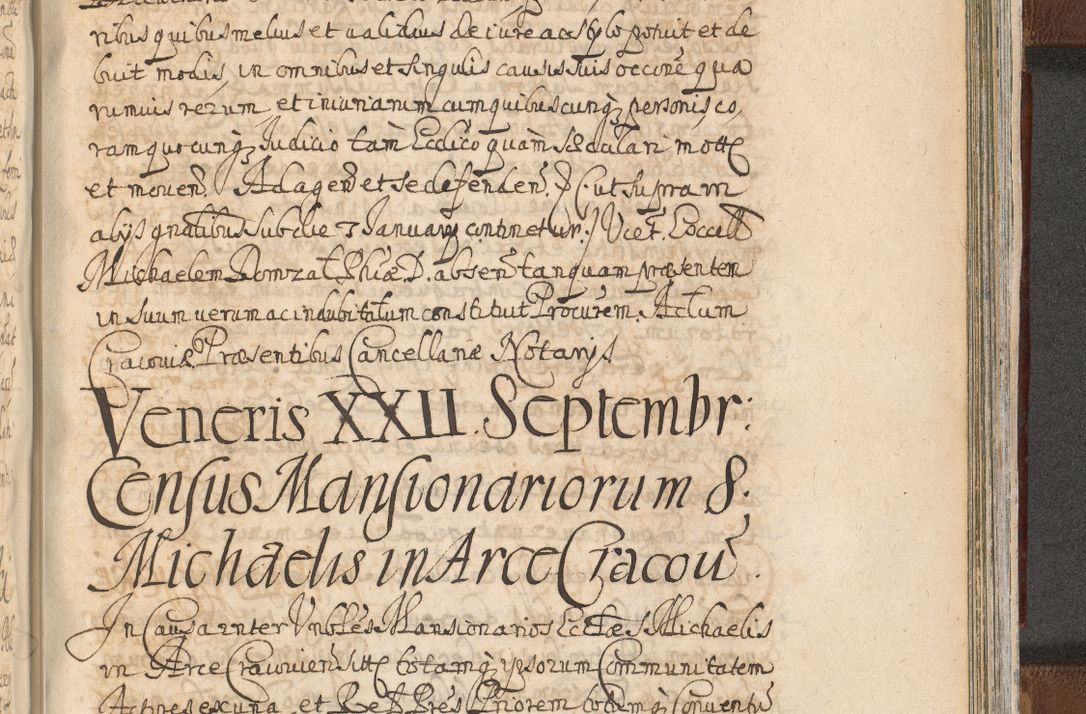 ribus quibus melius et validius de iure ac stylo potuit et de
buit modis, in omnibus et singulis causis suis occõne qua
rumvis rerum, et iniuriarum cum quibuscunq3 personis co,
ram quocunq3 Judicio tàm Ecclico quàm sæculari mott
et moven. Ad agen et se defenden. ut supra in
alijs gnalibus sub die 7 Januarij continetur. Vicet. Excell
Michaelem Domzat Phiæ D. absen tanquam præsentem
in suum verum ac indubitatum constituit Procurem. Actum
Cracoviæ Præsentibus Cancellariæ Notarijs
Veneris XXII. Septembr:
Census Mansionariorum S:
Michaelis in Arce Cracov
In Causa inter Vnbles Mansionarios Ecclæ S. Michaelis
in Arce Cracovien sitt totamq3 ipsorum Communitatem
Actores ex una, et Priorem totumq3 Conventu